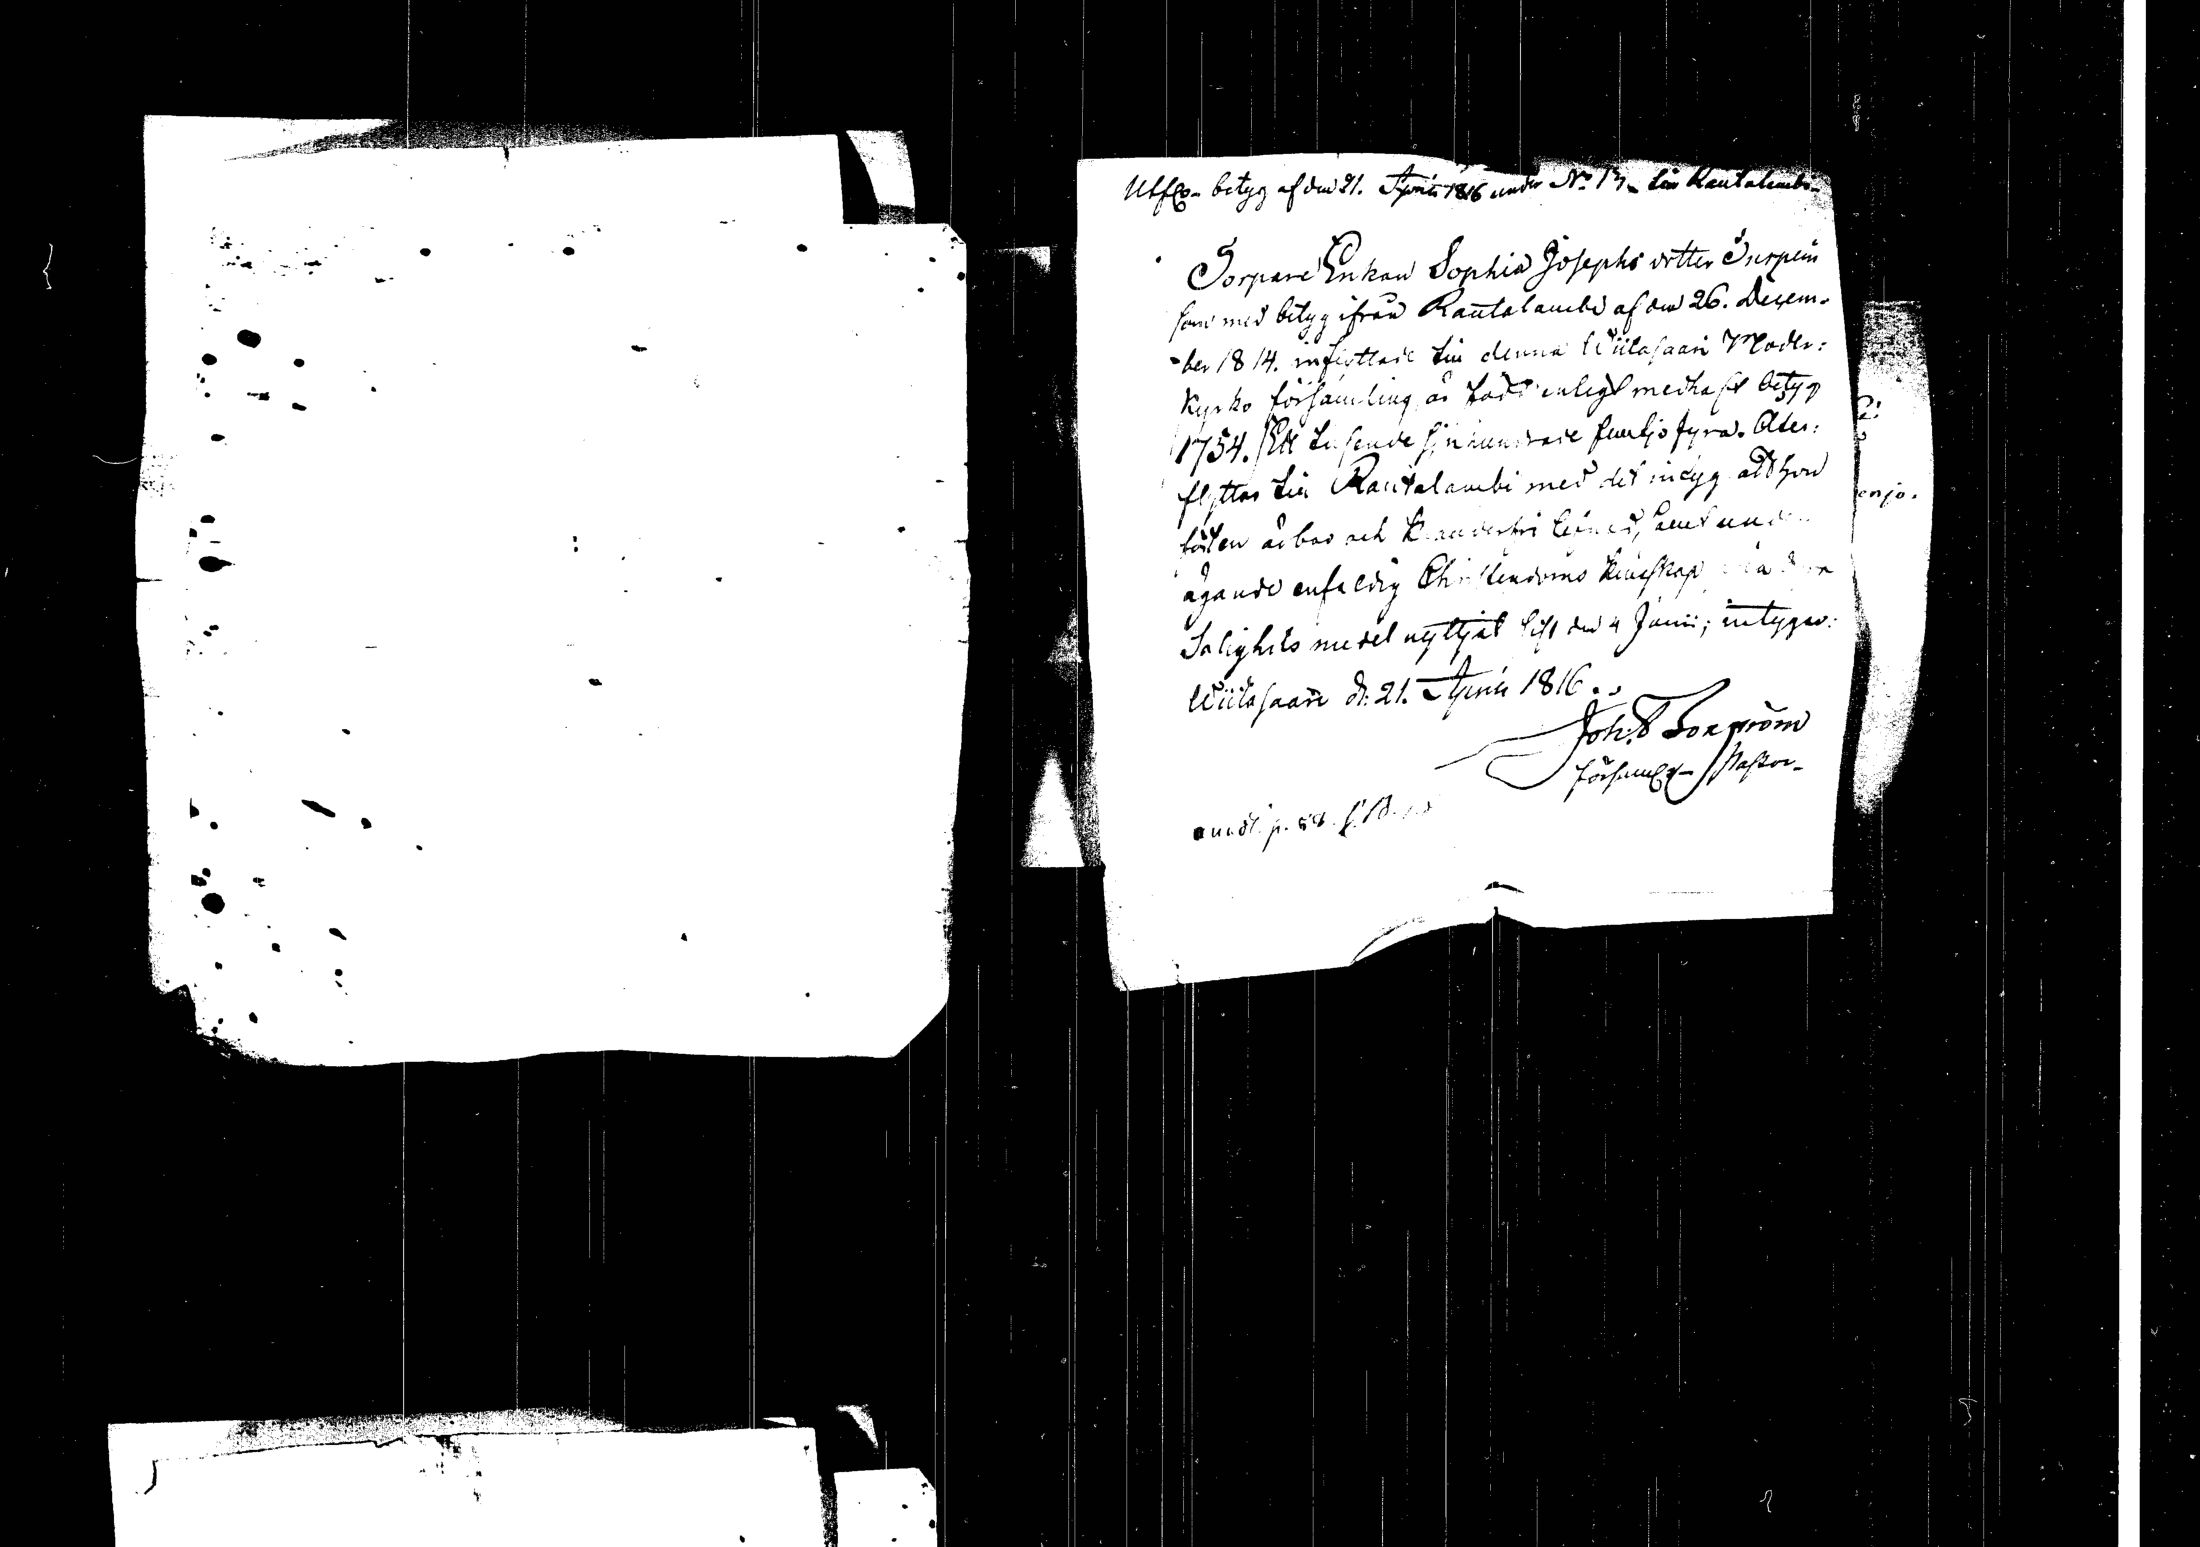 betyg af den 21. April 1816 under No 13 till Rautalambi
Torpare Enkan Sophia Josephs dotter Inspein
som med betyg ifrån Rautalambi af den 26. Decem-
ber 1814. inflyttade till denna Wiitasaari Moder:
Kyrko församling, är född enligt medhaft betyg
1754. Ett tusende sjuhundrade femtio fyra. Åter:
flyttar till Rautalambi med det intyg att hon
är och
ägande enfaldig Christendoms kundskap
Salighets medel nyttjat sist den 4 Junii; intygar:
Wiitasaari d: 21. April 1816.
Joh:
Församl: Pastor
p. 58.
enjo.